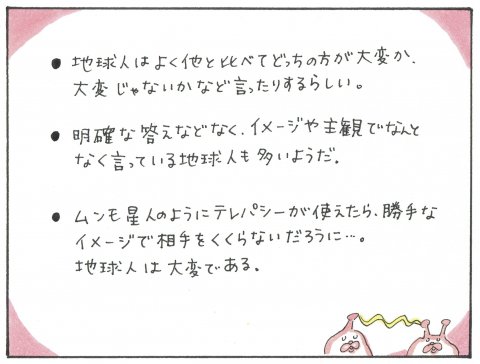 ● 地球人はよく他と比べてどっちの方が大変か、
大変じゃないかなど言ったりするらしい。
● 明確な答えなどなく、イメージや主観でなんと
なく言っている地球人も多いようだ。
● ムンモ星人のようにテレパシーが使えたら、勝手な
イメージで相手をくくらないだろうに…。
地球人は大変である。